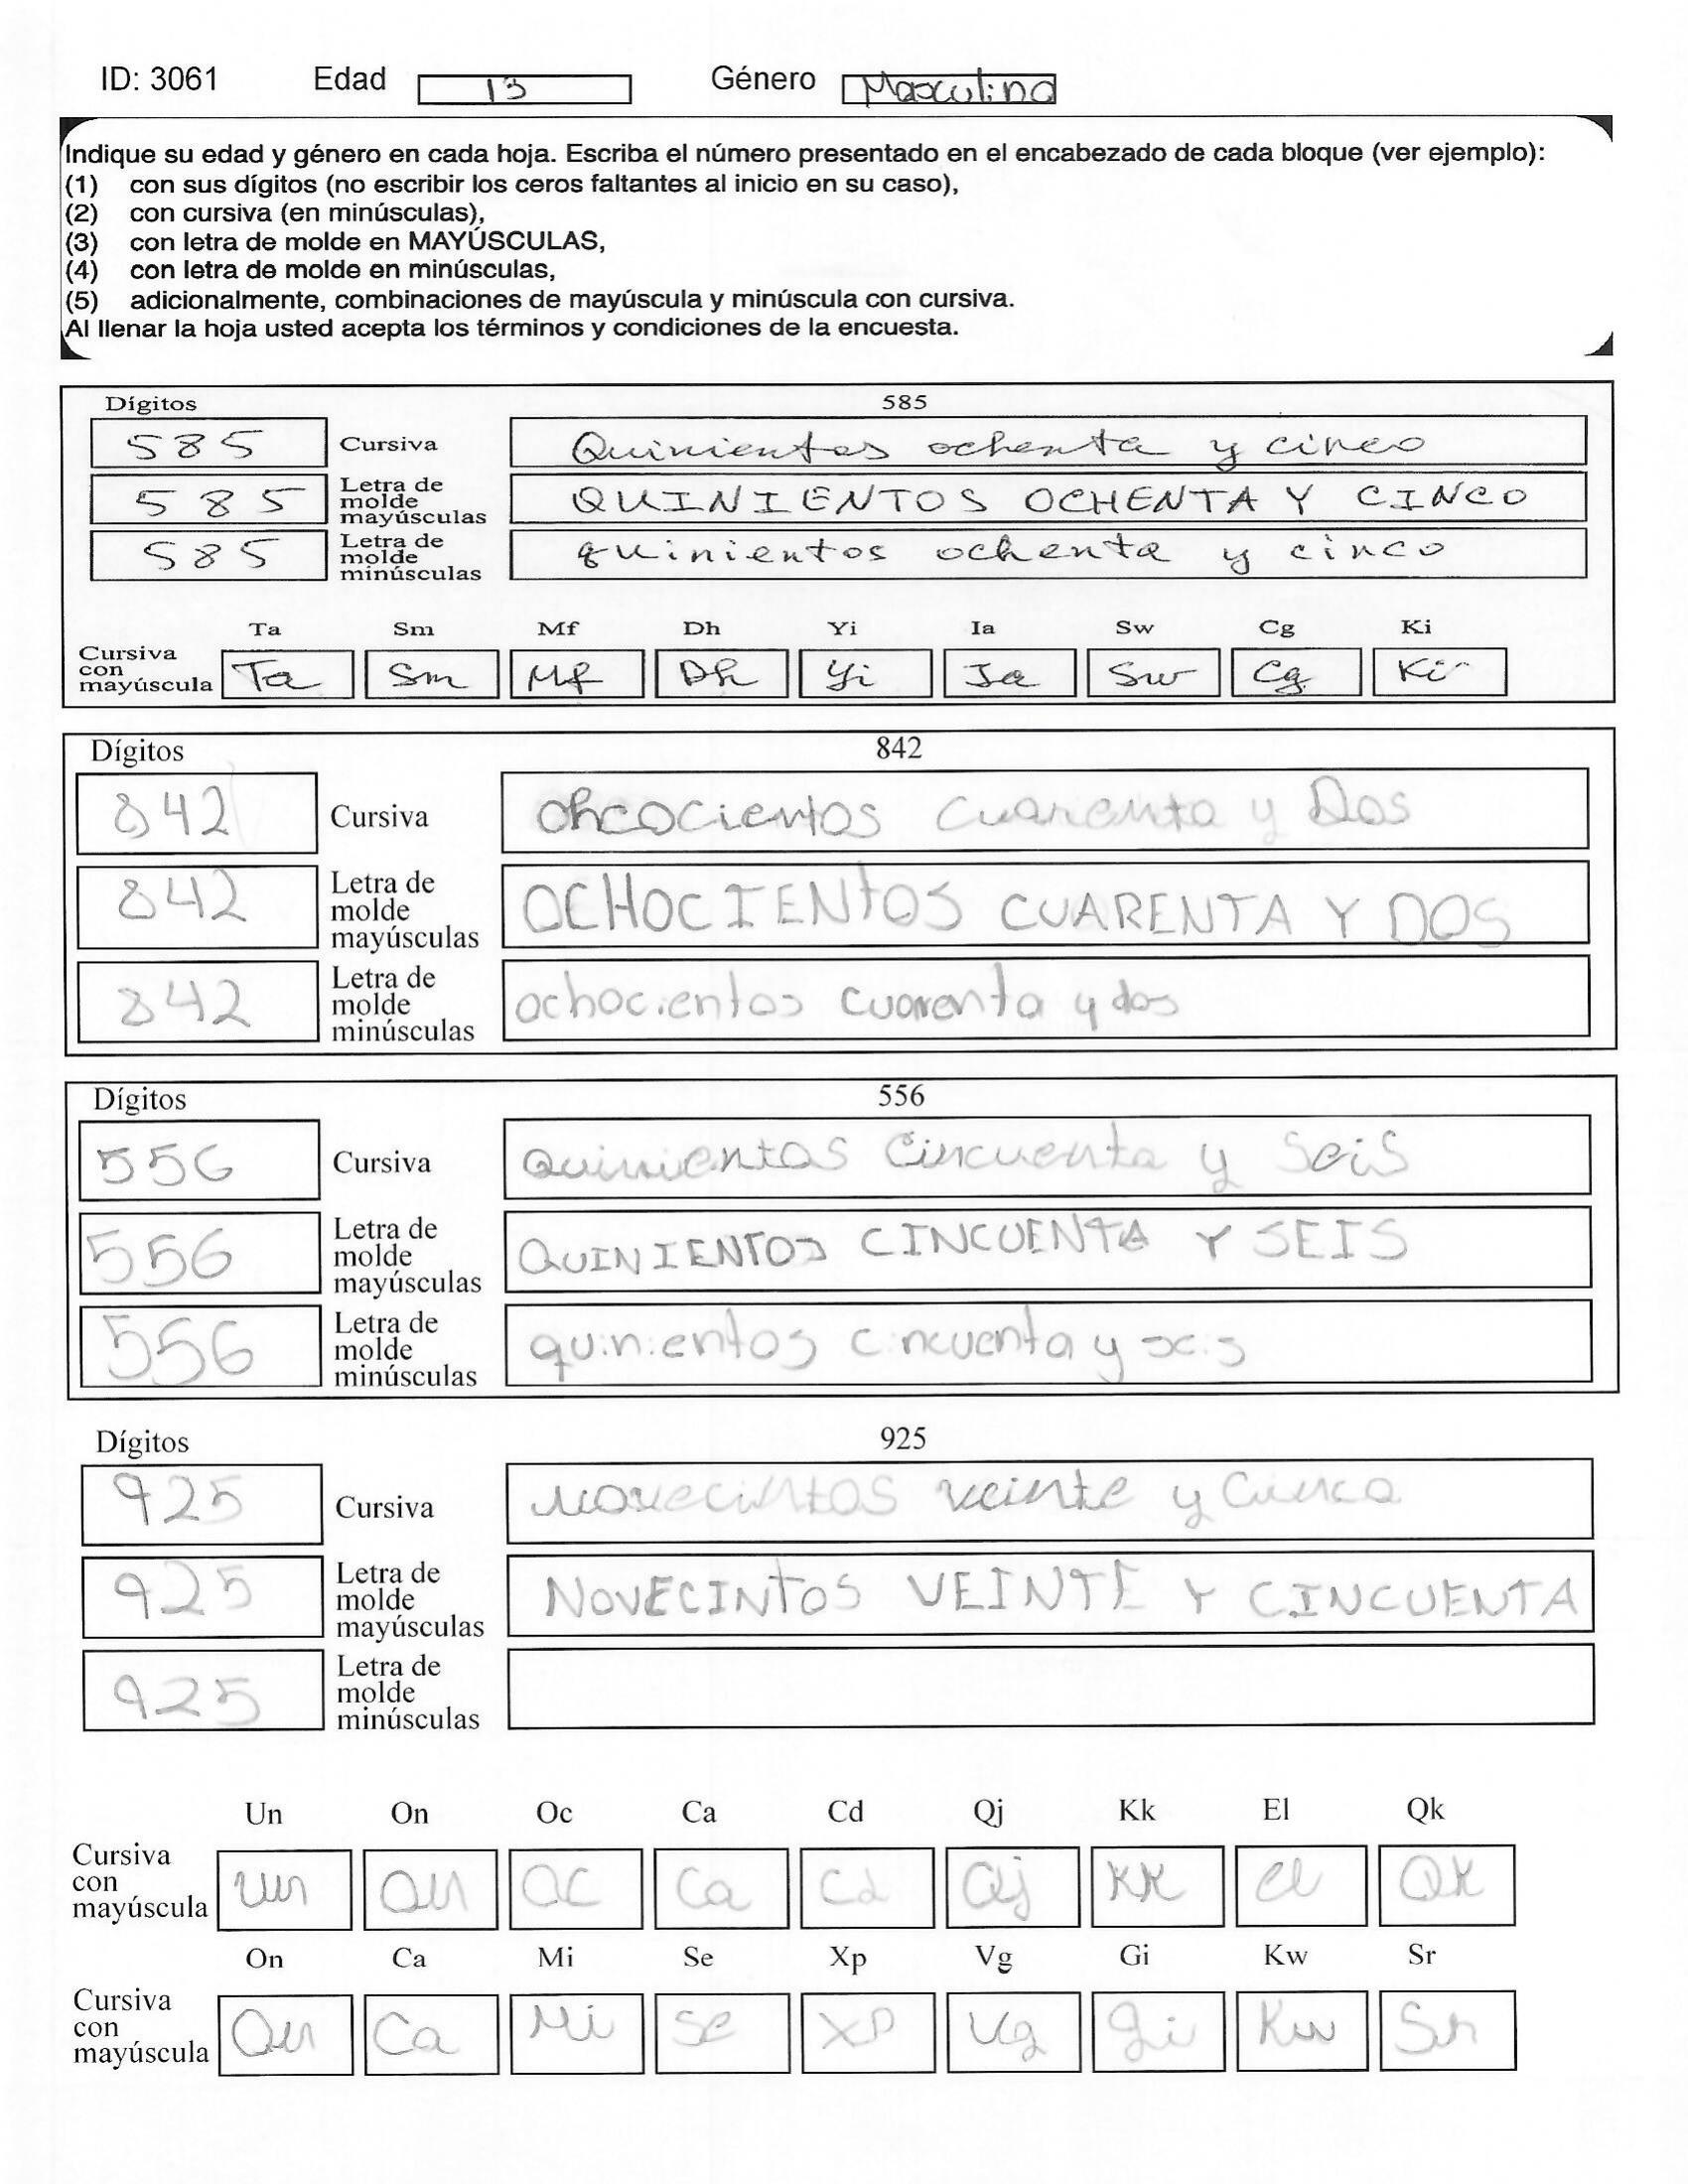 ID: 3061 Edad 13 Género Masculino
Indique su edad y género en cada hoja. Escriba el número presentado en el encabezado de cada bloque (ver ejemplo):
(1) con sus dígitos (no escribir los ceros faltantes al inicio en su caso),
(2) con cursiva (en minúsculas),
(3) con letra de molde en MAYÚSCULAS,
(4) con letra de molde en minúsculas,
(5) adicionalmente, combinaciones de mayúscula y minúscula con cursiva.
Al llenar la hoja usted acepta los términos y condiciones de la encuesta.
Dígitos 585
585 Cursiva Quinientos ochenta y cinco
585 Letra de molde mayúsculas QUINIENTOS OCHENTA Y CINCO
585 Letra de molde minúsculas quinientos ochenta y cinco
Ta Sm Mf Dh Yi Ia Sw Cg Ki
Cursiva con mayúscula Ta Sm Mf Dh Yi Ia Sw Cg Ki
Dígitos 842
842 Cursiva ohcocientos cuarenta y Dos
842 Letra de molde mayúsculas OCHOCIENtOS CUARENTA Y DOS
842 Letra de molde minúsculas ochocientos cuarenta y dos
Dígitos 556
556 Cursiva Quinientos Cincuenta y Seis
556 Letra de molde mayúsculas QUINIENTOS CINCUENTA Y SEIS
556 Letra de molde minúsculas quinientos cincuenta y seis
Dígitos 925
925 Cursiva novecintos veinte y Cinco
925 Letra de molde mayúsculas NOVECINtOS VEINTE Y CINCUENTA
925 Letra de molde minúsculas
Un On Oc Ca Cd Qj Kk El Qk
Cursiva con mayúscula Un On OC Ca Cd Qj KK El QK
On Ca Mi Se Xp Vg Gi Kw Sr
Cursiva con mayúscula On Ca Mi Se Xp Vg gi Kw Sr